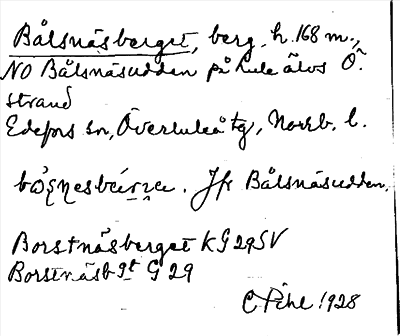 Bålsnäsberget, berg, h. 168 m.,
NO Bålsnäsudden på Lule älvs Ö.
strand
Edefors sn, Överluleå tg, Norrb. l.
Jfr Bålsnäsudden.
Borstnäsberget KG 29 SV
Borstnäsbgt G 29
C Pihl 1928